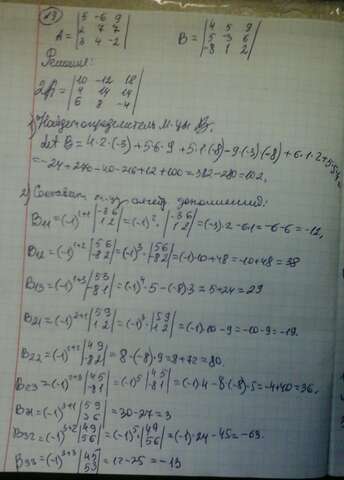 №3
A = |5 -6 9|
|2 7 7|
|3 4 -2|
B = |4 5 9|
|5 -3 6|
|-8 1 2|
Решение:
2A = |10 -12 18|
|4 14 14|
|6 8 -4|
1) Найдем определитель м-цы B,
det B = 4·2·(-3)+5·6·9+5·1·(-8)-9·(-3)(-8)+6·1·2+5·5·4=
=-24+270-40-216+12+100=382-280=102.
2) Составим м-цу дополнений:
B11=(-1)^1+1 |-3 6; 1 2|=(-1)^2·|-3 6; 1 2|=(-3)·2-6·1=-6-6=-12,
B12=(-1)^1+2 |5 6; -8 2|=(-1)^3·|5 6; -8 2|=(-1)·10+48=-10+48=38
B13=(-1)^1+3 |5 3; -8 1|=(-1)^4·5-(-8)3=5+24=29
B21=(-1)^2+1 |5 9; 1 2|=(-1)^3·|5 9; 1 2|=(-1)·10-9=-10-9=-19.
B22=(-1)^2+2 |4 9; -8 2|=8-(-8)·9=8+72=80.
B23=(-1)^2+3 |4 5; -8 1|=(-1)^5 |4 5; -8 1|=(-1)·4-8·(-8)·5=-4+40=36,
B31=(-1)^3+1 |5 9; 3 6|=30-27=3
B32=(-1)^3+2 |4 9; 5 6|=(-1)^5·|4 9; 5 6|=(-1)·24-45=-69.
B33=(-1)^3+3 |4 5; 5 3|=12-25=-13